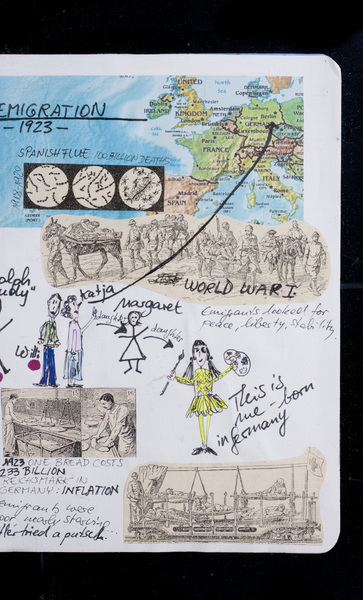 EMIGRATION
- 1923 -
SPANISH FLUE 100 BILLION DEATHS
1918-1920
UNITED
KINGDOM
IRELAND
North
Sea
DENMARK
Copenhagen
Amsterdam
Berlin
GERMANY
Luxembourg
Paris
FRANCE
ITALY
Madrid
SPAIN
WORLD WAR I
Emigrants looked for
peace, liberty, stability,
Katja
Margaret
daughter
daughter
Willi
This is
me - born
in germany
1923 ONE BREAD COSTS
233 BILLION
REICHSMARK IN
GERMANY: INFLATION
emigrants were
poor nearly starving
Hitler tried a putsch...